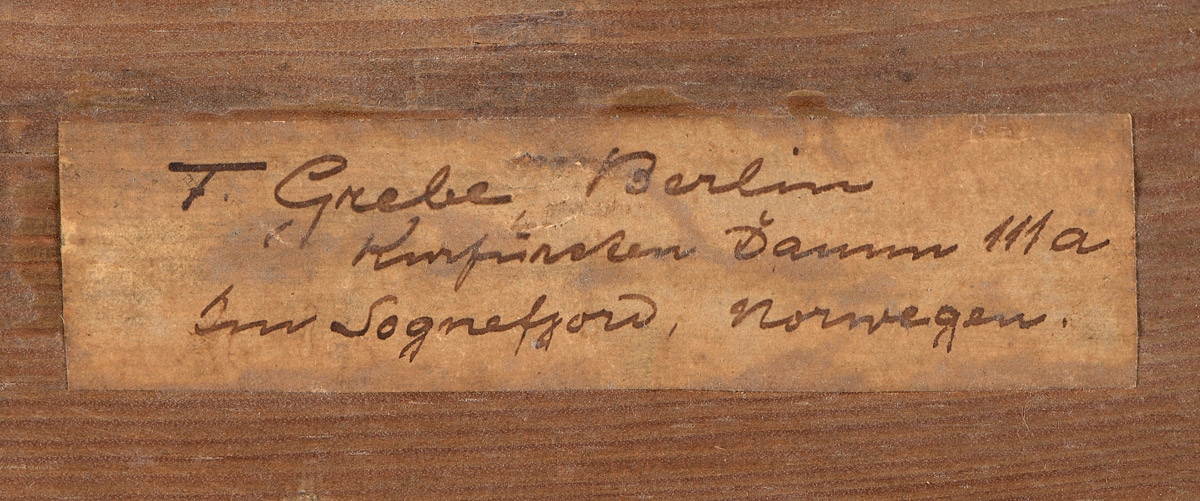 F. Grebe Berlin
Kurfürsten Damm 111a
Im Sognefjord, Norwegen.